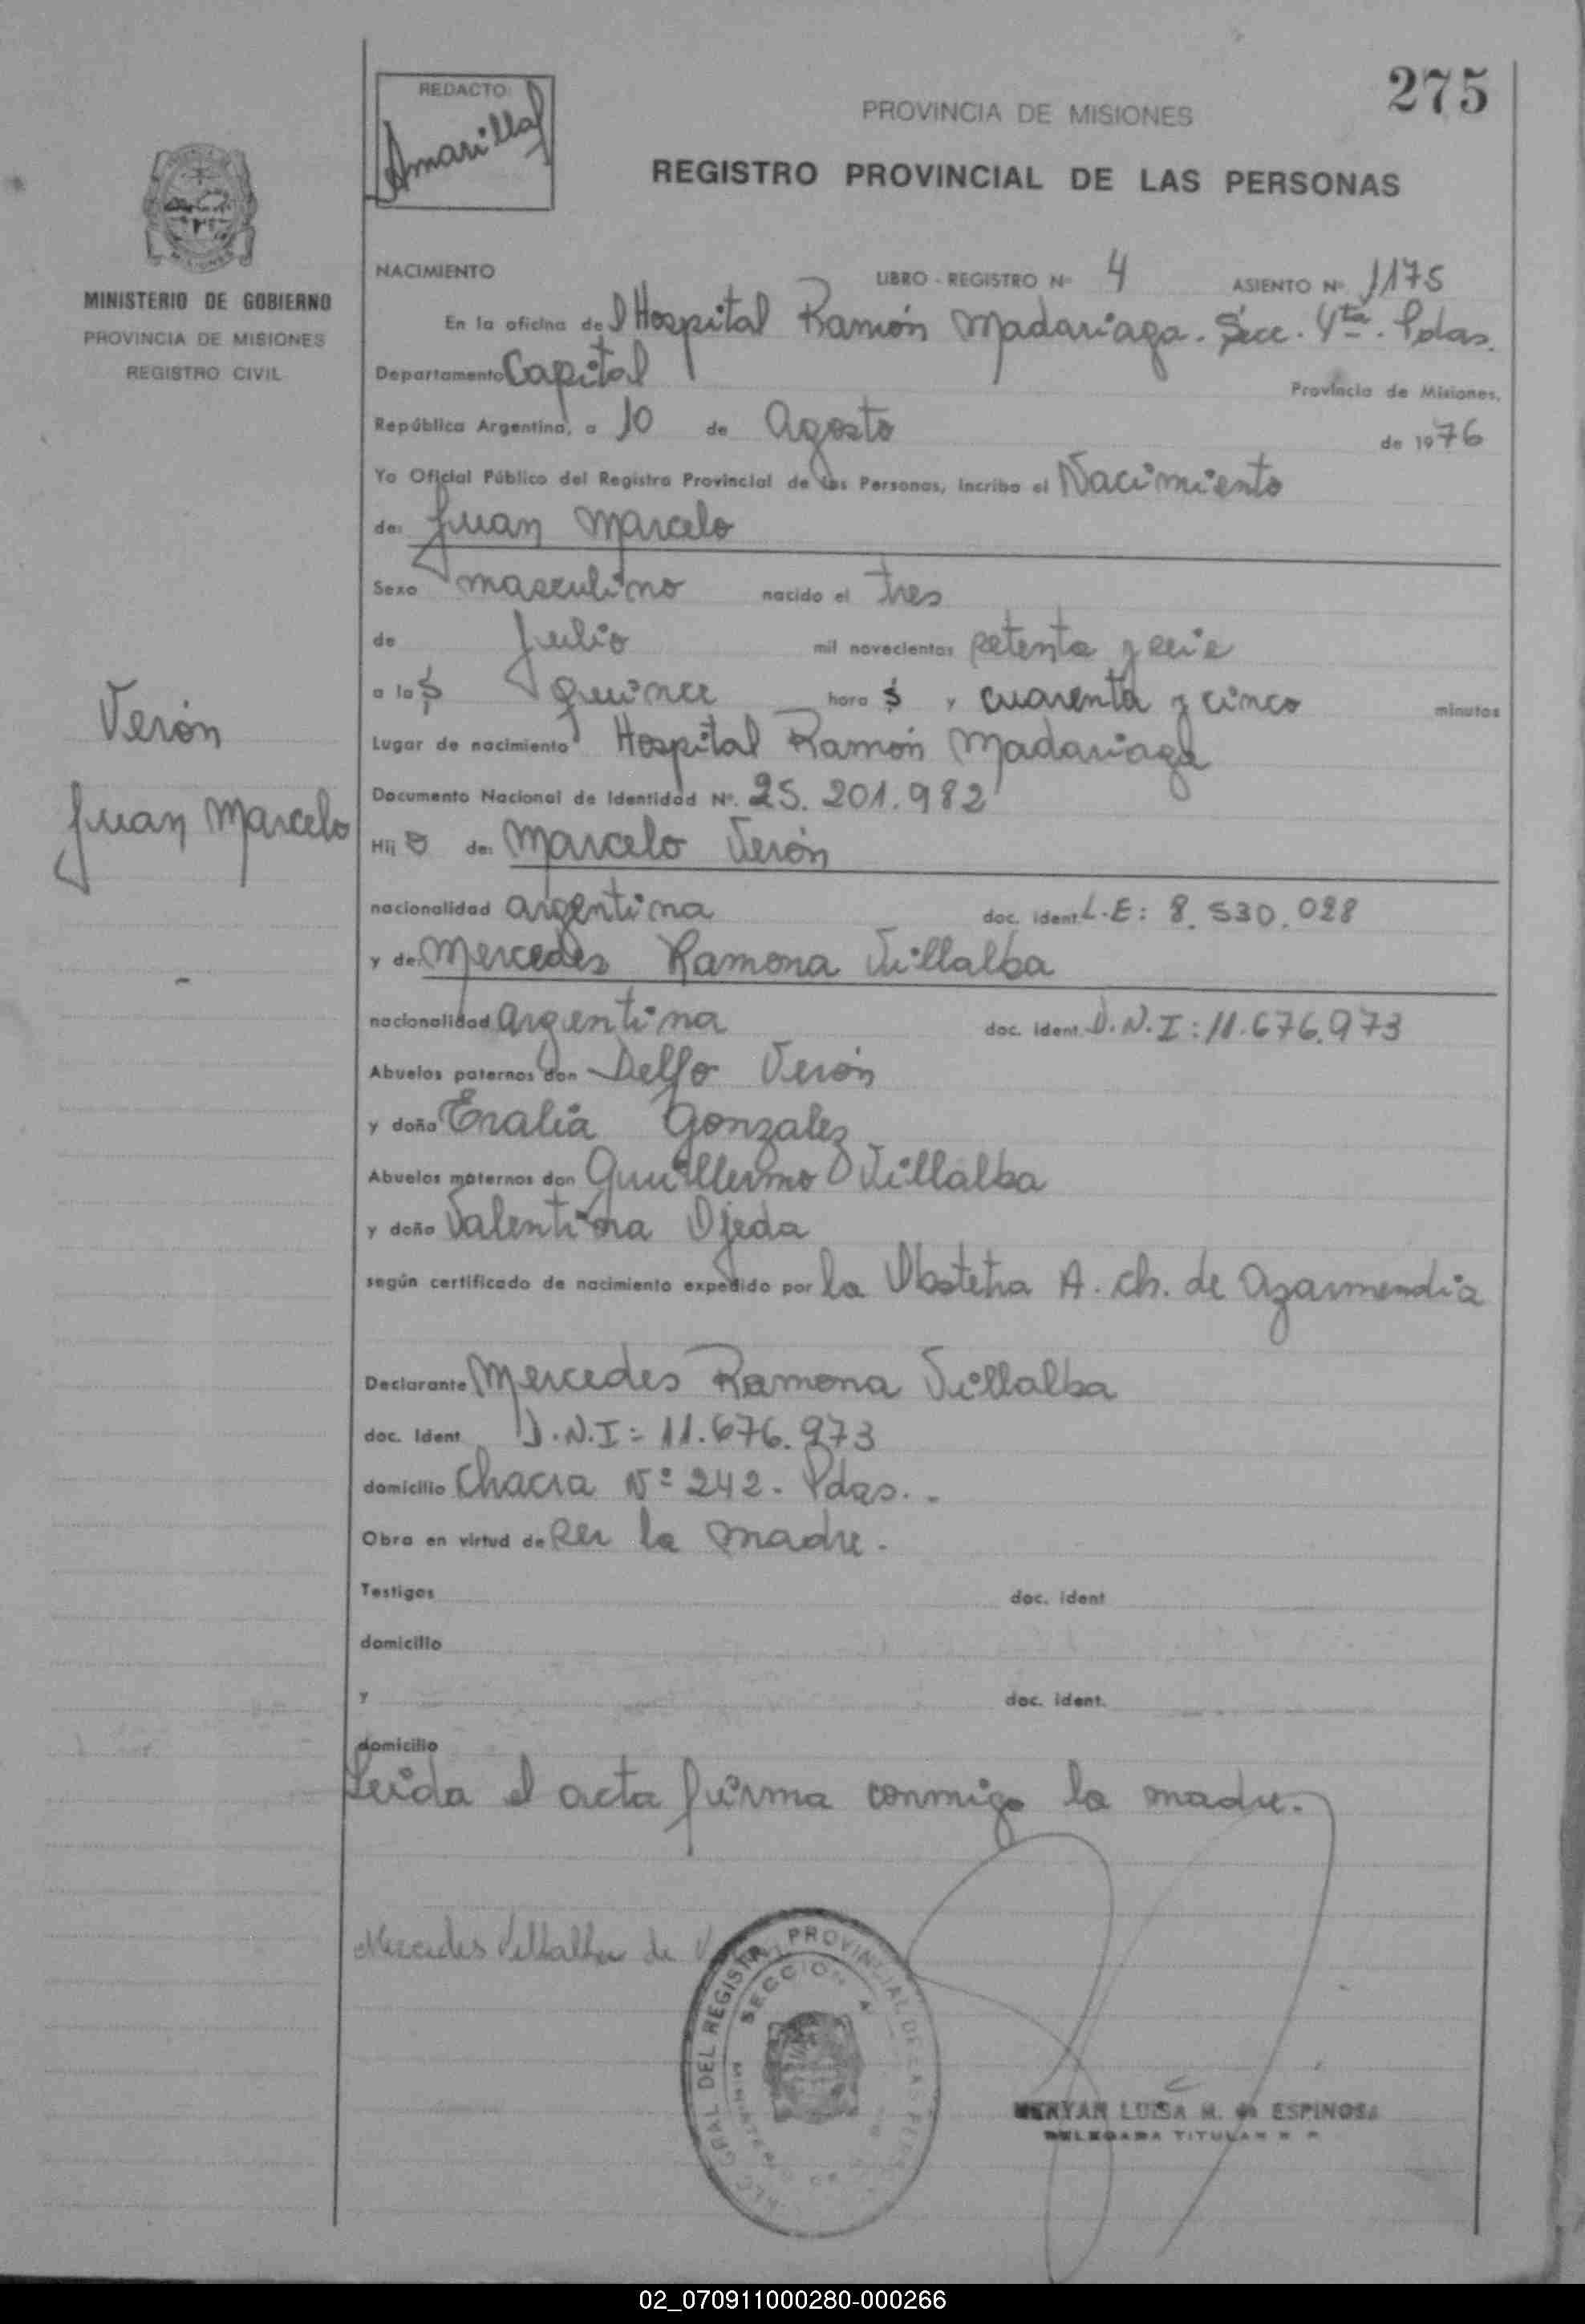 275
REDACTO
Amarilla
PROVINCIA DE MISIONES
REGISTRO PROVINCIAL DE LAS PERSONAS
MINISTERIO DE GOBIERNO
PROVINCIA DE MISIONES
REGISTRO CIVIL
Verón
Juan Marcelo
NACIMIENTO LIBRO - REGISTRO Nº 4 ASIENTO Nº 1175
En la oficina del Hospital Ramón Madariaga. Secc. 4ta. Pdas.
Departamento Capital Provincia de Misiones,
República Argentina, a 10 de Agosto de 1976
Yo Oficial Público del Registro Provincial de las Personas, incribo el Nacimiento
de: Juan Marcelo
Sexo masculino nacido el tres
de Julio mil novecientos setenta y seis
a las quince horas y cuarenta y cinco minutos
Lugar de nacimiento Hospital Ramón Madariaga
Documento Nacional de Identidad Nº. 25.201.982
Hijo de: Marcelo Verón
nacionalidad argentina doc. ident. L.E: 8.530.028
y de: Mercedes Ramona Villalba
nacionalidad argentina doc. ident. D.N.I: 11.676.973
Abuelos paternos don Delfo Verón
y doña Eralia Gonzalez
Abuelos maternos don Guillermo Villalba
y doña Valentina Ojeda
según certificado de nacimiento expedido por la Obstetra A. Ch. de Azarmendia
Declarante Mercedes Ramona Villalba
doc. Ident D.N.I: 11.676.973
domicilio Chacra Nº 242. Pdas..
Obra en virtud de ser la madre.
Testigos doc. ident
domicilio
y doc. ident.
domicilio
Leida el acta firma conmigo la madre.
Mercedes Villalba de
GRAL DEL REGISTRO PROVINCIAL DE LAS
SECCION 4
LUISA M. de ESPINOSA
DELEGADA TITULAR
02_070911000280-000266